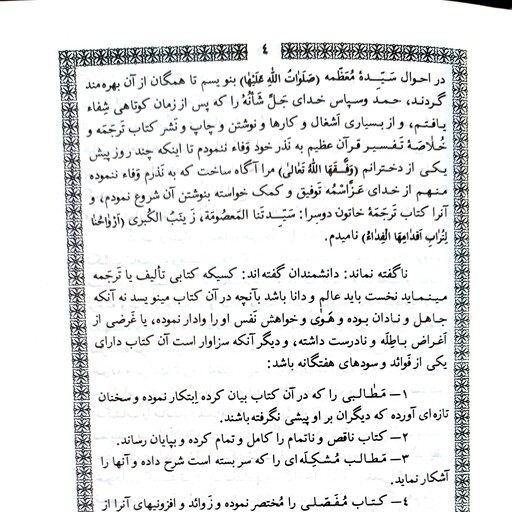 ٤
در احوال سَیِّدهٔ مُعَظَّمه (صَلَواتُ اللّٰهِ عَلَیْها) بنویسم تا همگان از آن بهره‌مند
گردند، حمد وسپاس خدای جَلَّ شَأنُهُ را که پس از زمان کوتاهی شِفاء
یافتم، و از بسیاری أشغال و کارها و نوشتن و چاپ و نَشر کتاب تَرجَمَه و
خُلاصَهٔ تَفسیر قرآن عظیم به نَذر خود وَفاء ننمودم تا اینکه چند روز پیش
یکی از دخترانم (وَفَّقَهَا اللّٰهُ تَعالیٰ) مرا آگاه ساخت که به نَذرم وَفاء ننموده
منهم از خدای عَزَّ اسْمُه تَوفیق و کمک خواسته بنوشتن آن شروع نمودم، و
آنرا کتاب تَرجَمَهٔ خاتون دوسرا: سَیِّدَتنَا المَعصُومَة، زَینَبُ الکُبریٰ (اَرْواحُنا
لِتُرابِ اَقدامِهَا الفِداءُ) نامیدم.
ناگفته نماند: دانشمندان گفته‌اند: کسیکه کتابی تألیف یا تَرجَمه
مینماید نخست باید عالِم و دانا باشد بآنچه در آن کتاب مینویسد نه آنکه
جاهل و نادان بوده و هَویٰ و خواهش نَفس او را وادار نموده، یا غَرَضی از
أغراض باطِلَه و نادرست داشته، و دیگر آنکه سزاوار است آن کتاب دارای
یکی از فَوائد و سودهای هفتگانه باشد:
۱– مَطالبی را که در آن کتاب بیان کرده اِبتکار نموده و سخنان
تازه‌ای آورده که دیگران بر او پیشی نگرفته باشند.
۲– کتاب ناقص و ناتمام را کامل و تمام کرده و بپایان رساند.
۳– مَطالب مُشکِلَه‌ای را که سر بسته است شرح داده و آنها را
آشکار نماید.
٤– کتاب مُفَصَّلی را مُختصر نموده و زَوائد و افزونیهای آنرا از